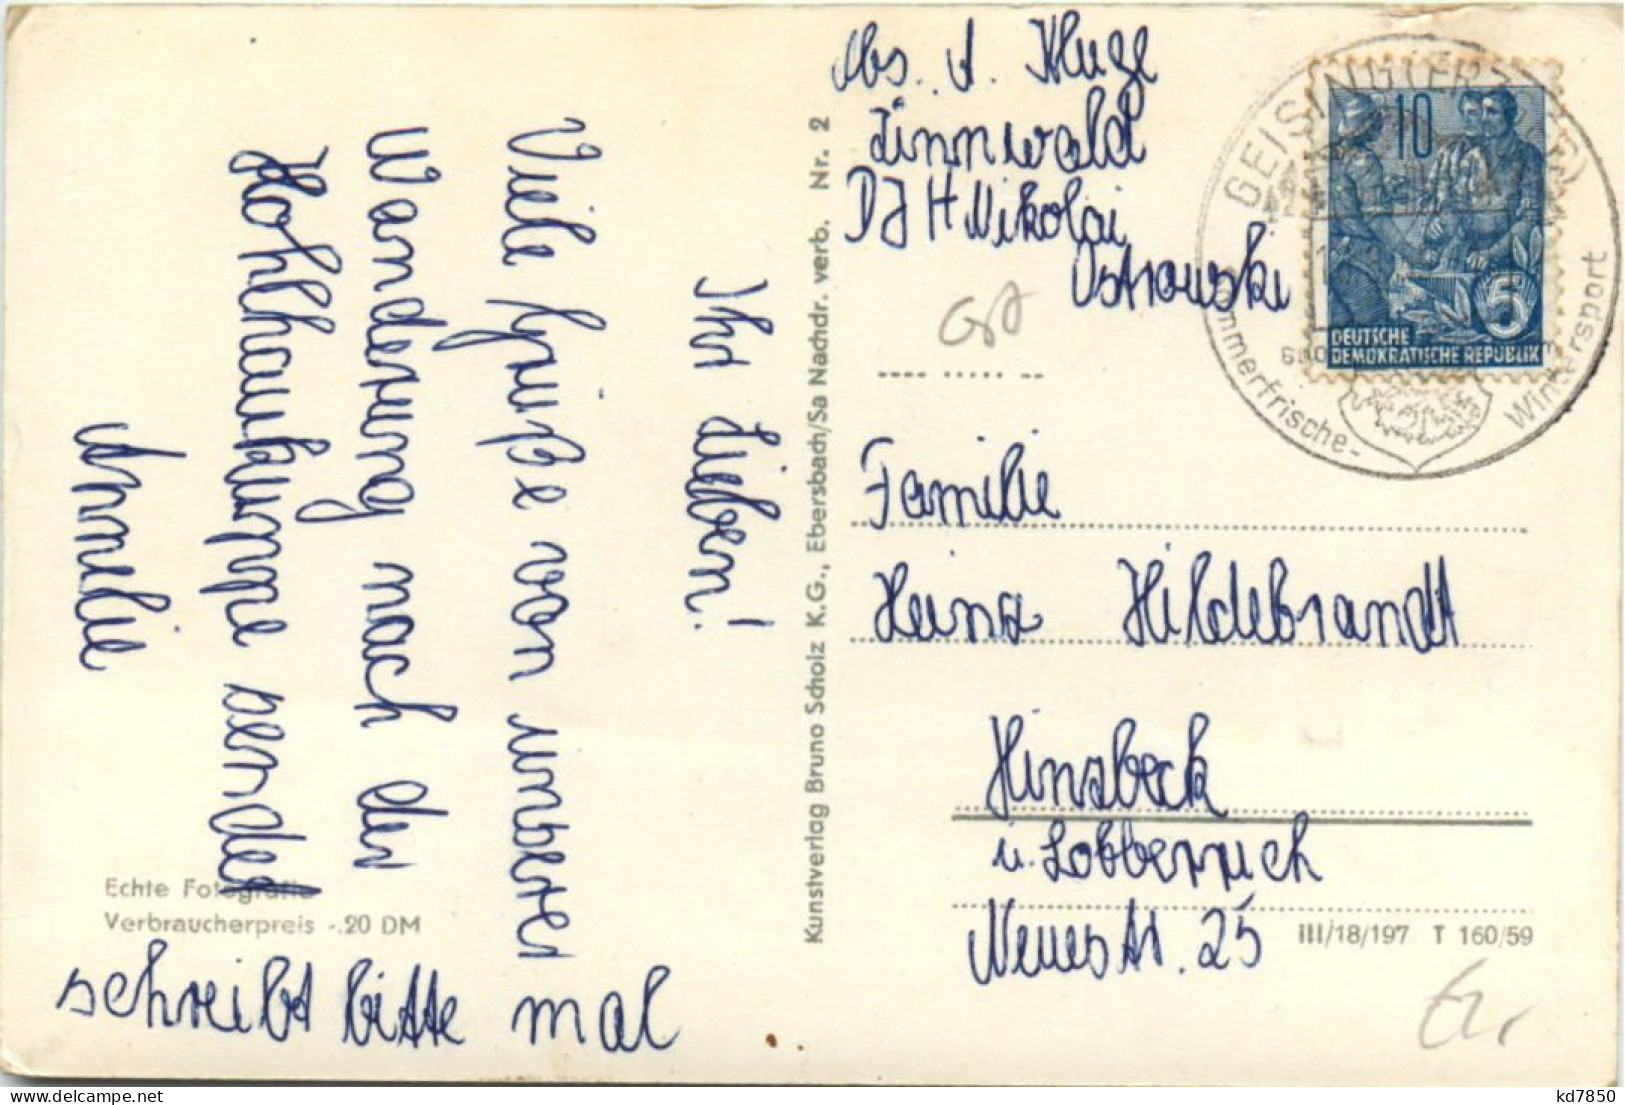 Abs. A. Kluge
Zinnwald
DJH Nikolai
Ostrowski
GEISING (ERZGEB)
Sommerfrische-
Wintersport
10
5
DEUTSCHE
DEMOKRATISCHE REPUBLIK
Ihr Lieben!
Viele Grüße von unserer
Wanderung nach der
Kohlhaukuppe sendet
Annelie
schreibt bitte mal
Echte Fotografie
Verbraucherpreis -.20 DM
Kunstverlag Bruno Scholz K.G., Ebersbach/Sa Nachdr. verb. Nr. 2
Familie
Heinz Hildebrandt
Hinsbeck
ü. Lobberich
Neuestr. 25
III/18/197 T 160/59
kd7850